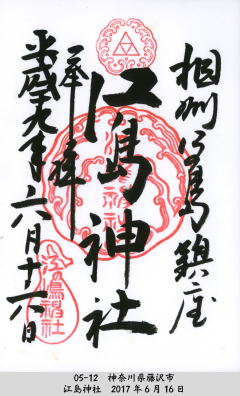 相州江島鎮座
江島神社
奉拝
平成二十九年六月十六日
05-12 神奈川県藤沢市
江島神社 2017年6月16日